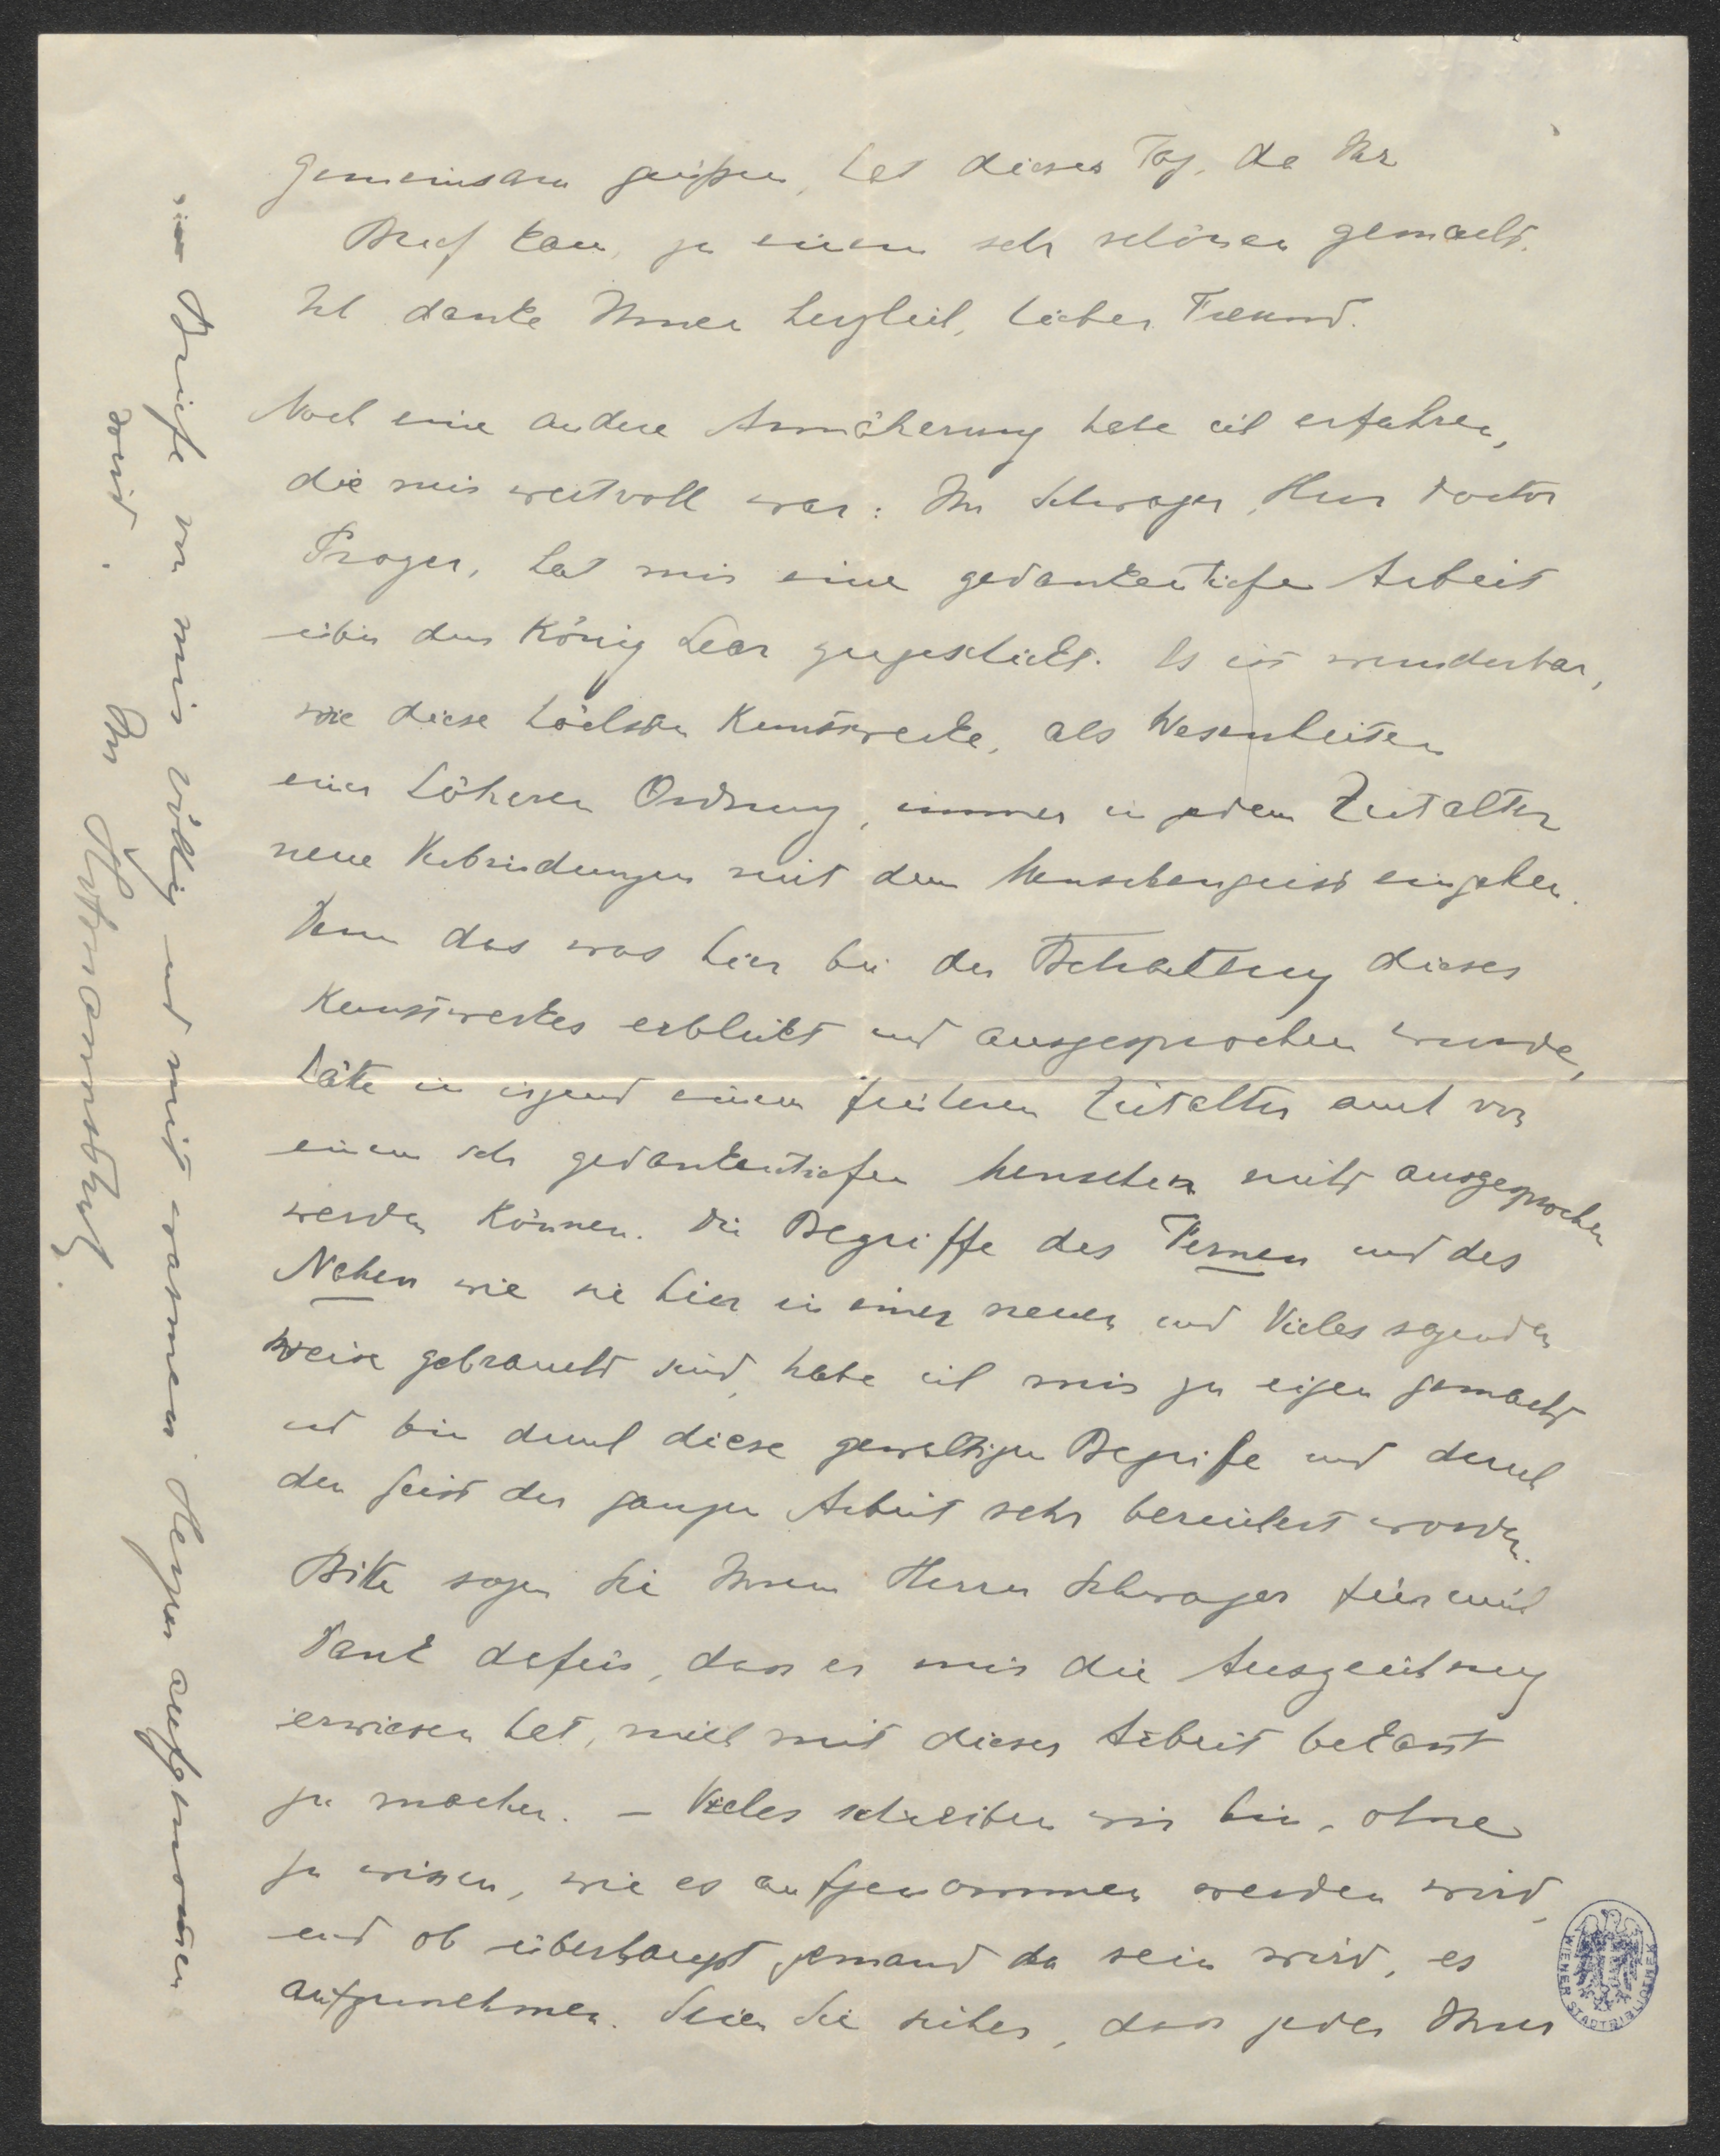 gemeinsam grüßen, hat dieser Tag, da Ihr
Brief kam, zu einem sehr schönen gemacht.
Ich danke Ihnen herzlich, lieber Freund.
Noch eine andere Annäherung habe ich erfahren,
die mir wertvoll war: Ihr Schwager, Herr Doctor
Prager, hat mir eine gedankentiefe Arbeit
über den König Lear zugeschickt. Es ist wunderbar,
wie diese höchsten Kunstwerke, als Wesenheiten
einer höheren Ordnung, immer in jedem Zeitalter
neue Verbindungen mit dem Menschengeist eingehen.
Denn das was hier bei der Betrachtung dieses
Kunstwerkes erblickt und ausgesprochen wurde,
hätte in irgend einem früheren Zeitalter auch von
einem sehr gedankentiefen Menschen nicht ausgesprochen
werden können. Die Begriffe des Fernen und des
Nahen wie sie hier in einer neuen und Vieles sagenden
Weise gebraucht sind, habe ich mir zu eigen gemacht
und bin durch diese gewaltigen Begriffe und durch
den Geist der ganzen Arbeit sehr bereichert worden.
Bitte sagen Sie Ihrem Herrn Schwager für mich
Dank dafür, dass er mir die Auszeichnung
erwiesen hat, mich mit dieser Arbeit bekannt
zu machen. – Vieles schreiben wir hin, ohne
zu wissen, wie es aufgenommen werden wird,
und ob überhaupt jemand da sein wird, es
aufzunehmen. Seien Sie sicher, dass jeder Ihrer
Briefe von mir völlig und mit warmem Herzen aufgenomen
wird.
Ihr
WIENER STADTBIBLIOTHEK